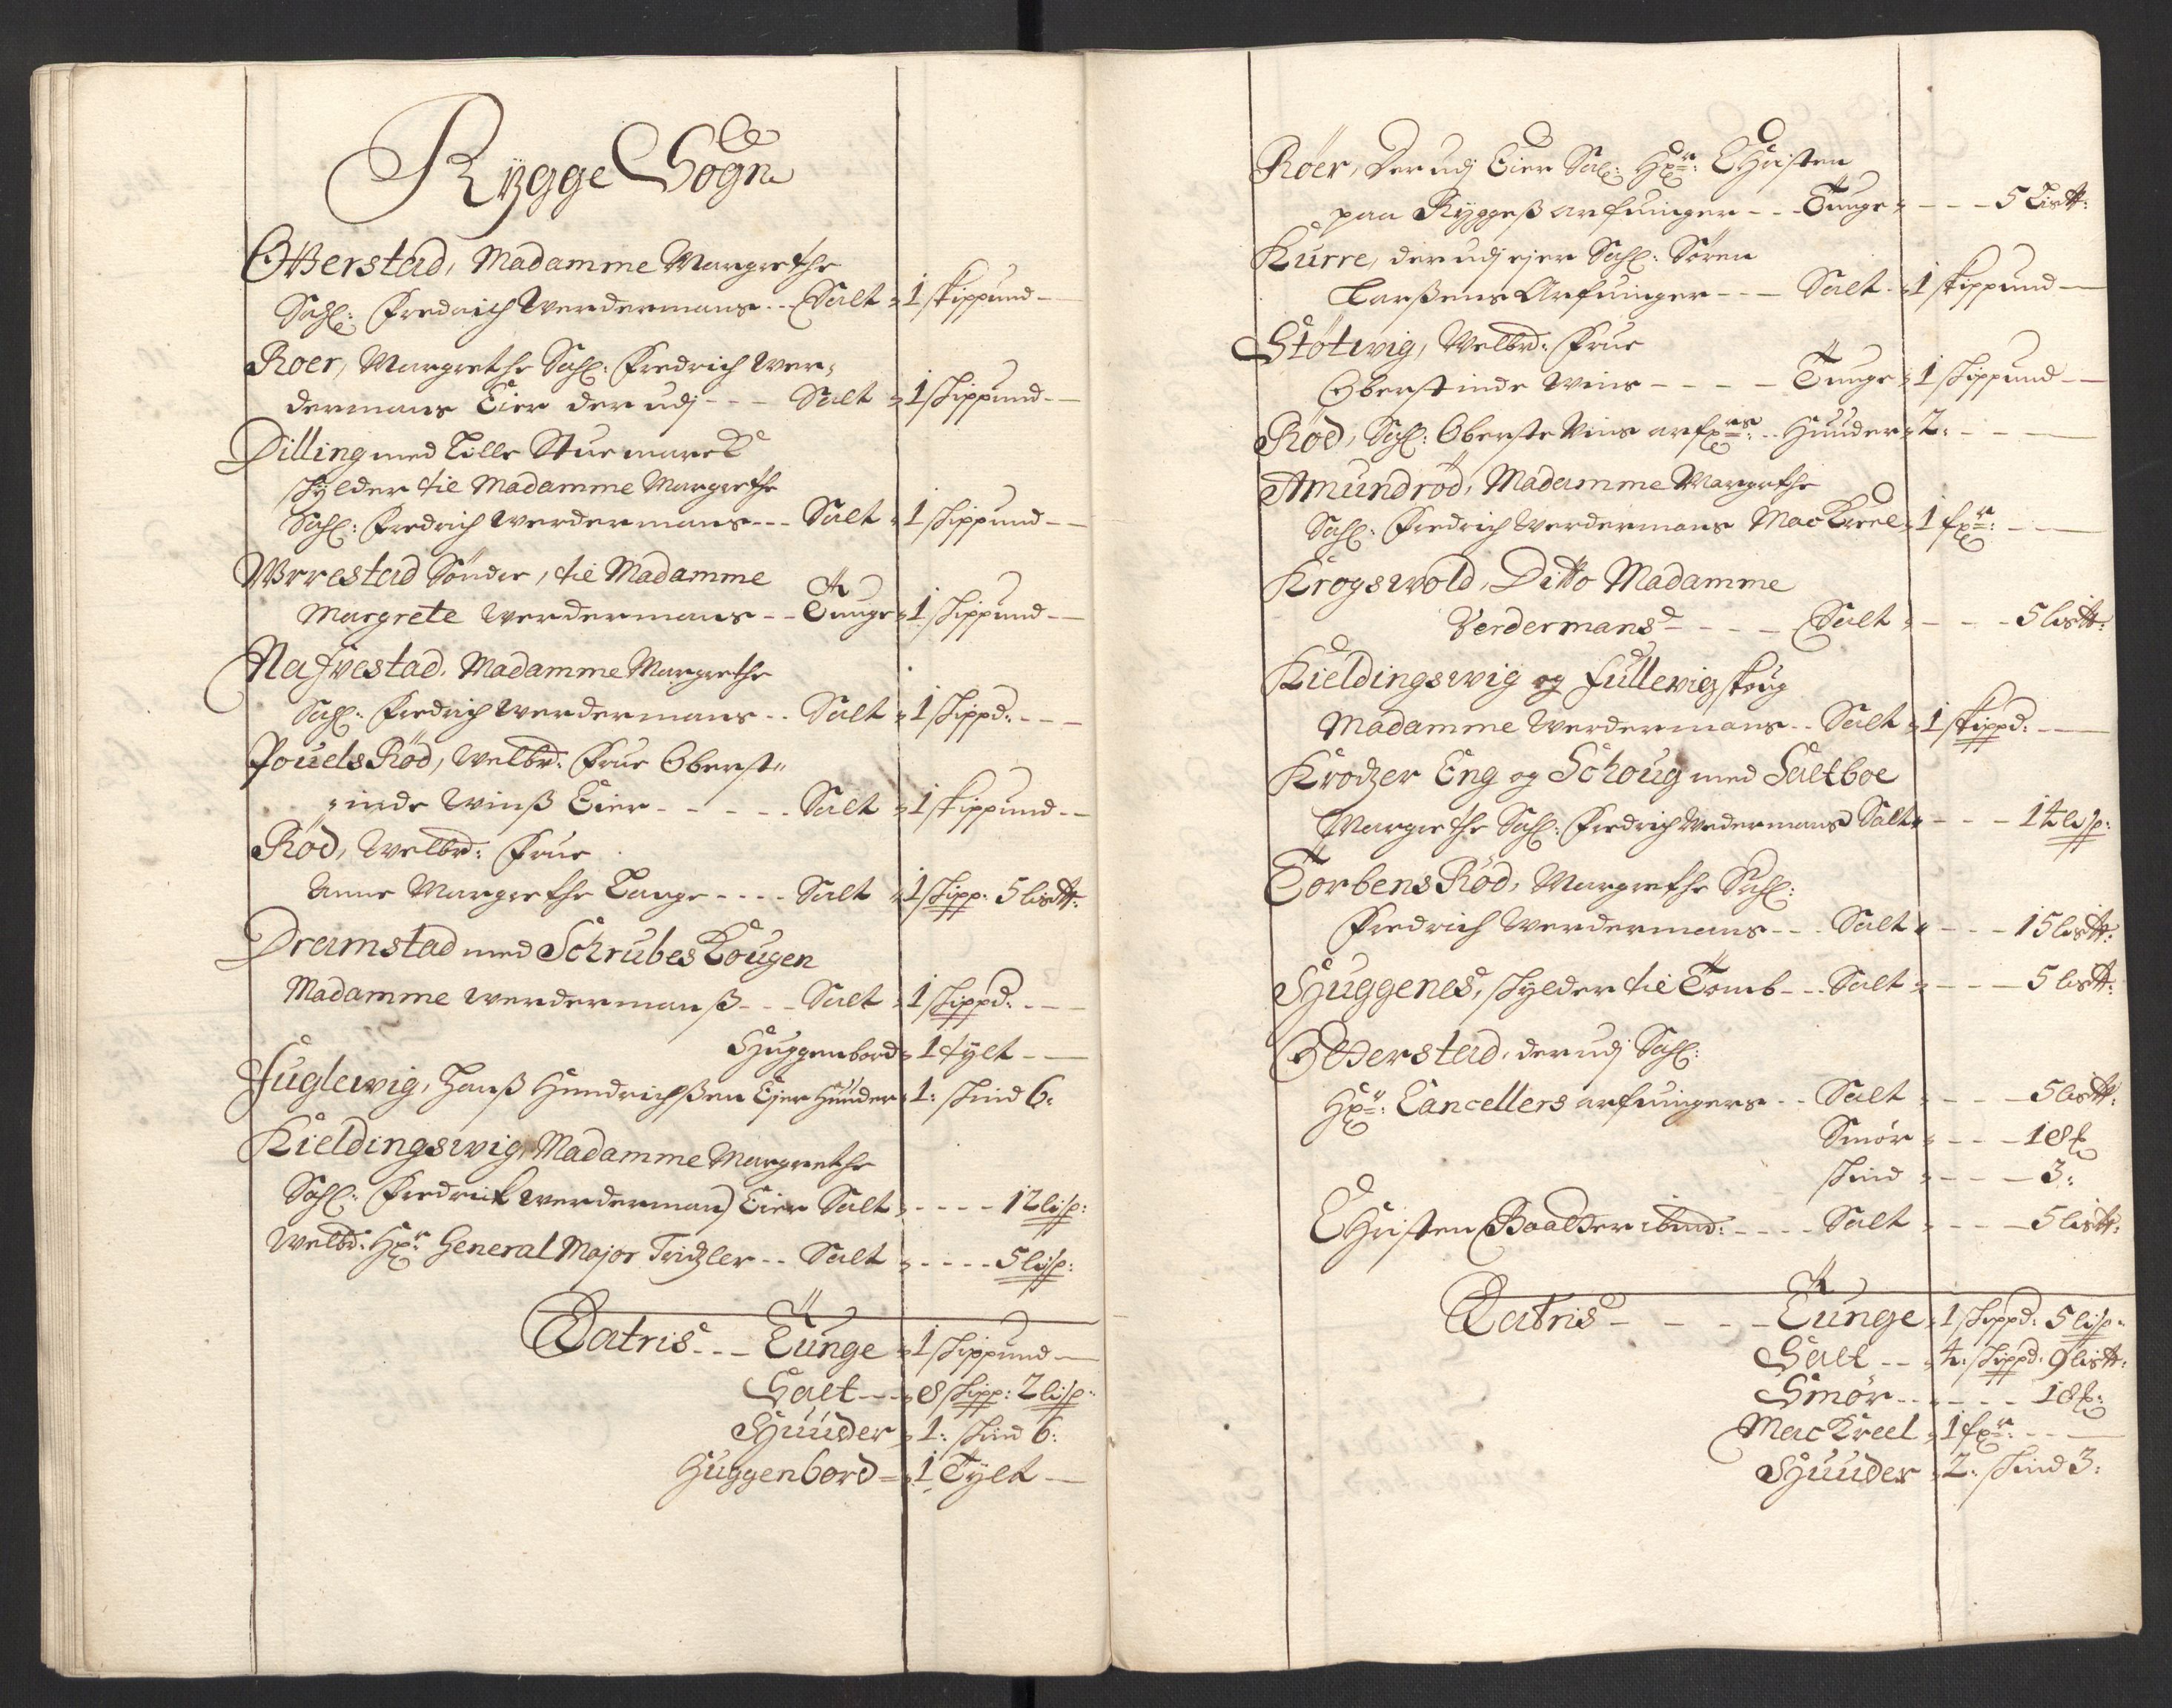 Rygge Sogn
Otterstad, Madamme Margrethe
Sahl: Fredrich Werdermans - - Salt = 1 skippund -
Roer, Margrethe Sahl: Fredrich Wer=
dermans Eier der udj - - - Salt = 1 skippund -
Dilling med Lille Stuemarck
skylder til Madamme Margrethe
Sahl: Fredrich Werdermans - - - Salt = 1 skippund -
Wrrestad Sönder, til Madamme
Margrete Werdermans - - Tunge = 1 skippund -
Nafvestad, Madamme Margrethe
Sahl: Fredrich Werdermans - - Salt = 1 skippd: - - -
Pouels Röd, Welbr: Frue Oberst=
=inde Winß Eier - - - - - Salt = 1 skippund -
Röd, Welbr: Frue
Anne Margrethe Lange - - - - Salt = 1 skipp: 5 lis℔:
Dramstad med Schrubeskougen
Madamme Werdermanß - - - Salt = 1 skippd: - - -
Huggenbord = 1 tylt - -
Fuglewig, Hanß Hendrichßen Ejer Huuder = 1: skind 6:
Kieldingswig, Madamme Margrethe
Sahl: Fredrick Werderman) Eier Salt = - - - - 12 lisp:
Welbr: Hr: General Major Tridzler - - Salt = - - - - 5 lisp:
Latris - - - Tunge = 1 skippund -
Salt - - = 8 skipp: 2 lisp:
Huuder = 1: skind 6:
Huggenbord = 1 Tylt -
Röer, Der udj Eier Sal: Hr: Christen
paa Ryggeß arfuinger - - - Tunge = - - - 5 Lis℔:
Kurre, der udj ejer Sahl: Sören
Larßens Arfuinger - - - Salt = 1 skippund -
Stötwig, Welbr: Frue
Oberstinde Wins - - - - - Tunge = 1 skippund -
Röd, Sahl: Oberste Vins arfrs: - - Huuder = 2: - - -
Amundröd, Madamme Margrethe
Sahl: Fredrich Werdermans Mackreel = 1 fr: - -
Krogswold, Ditto Madamme
Verdermans - - - - Salt = - - - 5 lis℔:
Kieldingswig og Fullewig skoug
Madamme Werdermans - - Salt = 1 skippd: - -
Krodzer Eng og Schoug med Saltboe
Margrethe Sahl: Fredrich Wedermans Salt = - - - 14 lisp:
Torbens Röd, Margrethe Sahl:
Fredrich Werdermans - - - Salt = - - - 15 lis℔:
Huggenes, skylder til Tomb - - - Salt = - - - 5 lis℔:
Otterstad, der udj Sahl:
Hr: Cancellers arfuingers - - Salt = - - - 5 lis℔:
Smör = - - - 18
skind = - - - 3:
Christen Baalder ibmd: - - - - Salt = - - - 5 lis℔:
Latris - - - - Tunge = 1 skippd: 5 lisp:
Salt - - = 4: skippd: 9 lis℔:
Smör - - - - - - 18
Mackreel = 1 fr: - - -
Huuder = 2: skind 3: